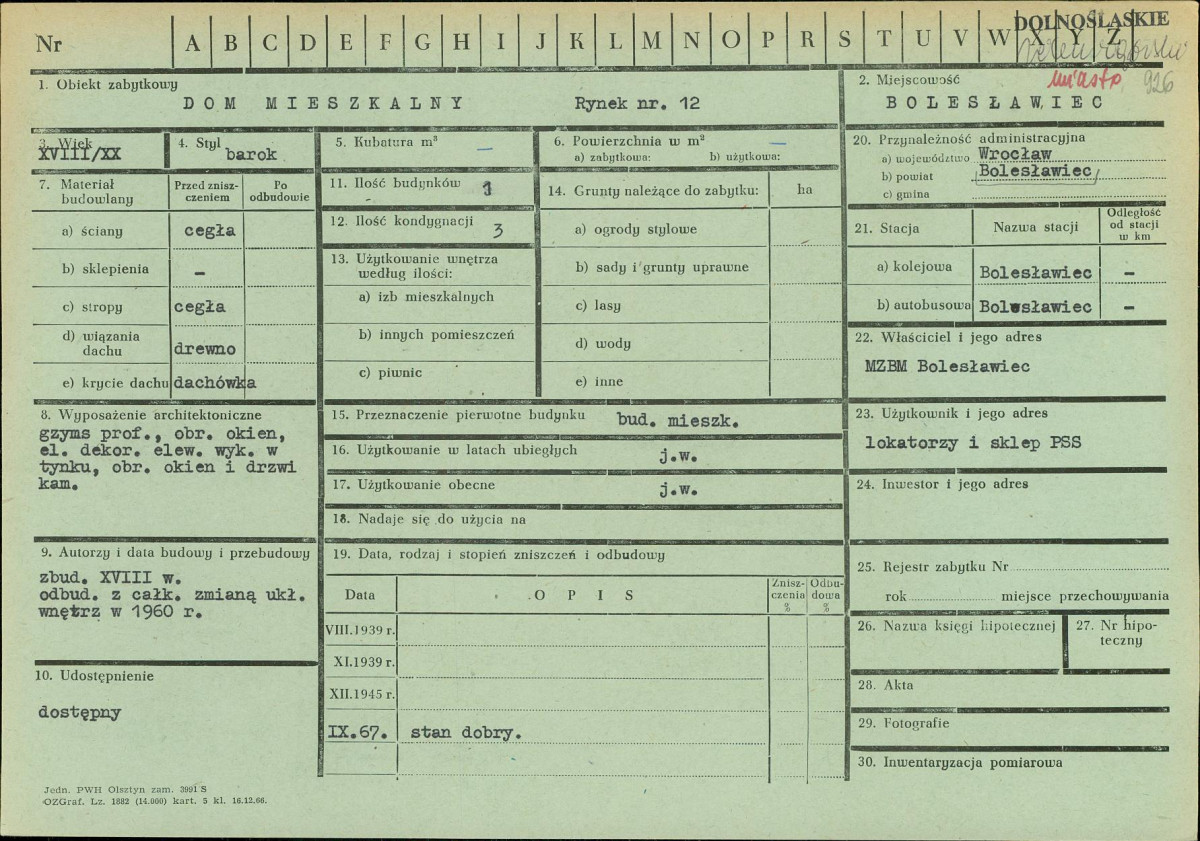 Nr A B C D E F G H I J K L M N O P R S T U V W X Y Z
DOLNOŚLĄSKIE
miasto 926
1. Obiekt zabytkowy
DOM MIESZKALNY Rynek nr. 12
2. Miejscowość
BOLESŁAWIEC
3. Wiek
XVIII/XX
4. Styl
barok
5. Kubatura m³
—
6. Powierzchnia w m² —
a) zabytkowa: b) użytkowa:
7. Materiał budowlany
Przed zniszczeniem
Po odbudowie
a) ściany cegła
b) sklepienia –
c) stropy cegła
d) wiązania dachu drewno
e) krycie dachu dachówka
8. Wyposażenie architektoniczne
gzyms prof., obr. okien,
el. dekor. elew. wyk. w
tynku, obr. okien i drzwi
kam.
9. Autorzy i data budowy i przebudowy
zbud. XVIII w.
odbud. z całk. zmianą ukł.
wnętrz w 1960 r.
10. Udostępnienie
dostępny
11. Ilość budynków 1
12. Ilość kondygnacji 3
13. Użytkowanie wnętrza
według ilości:
a) izb mieszkalnych
b) innych pomieszczeń
c) piwnic
14. Grunty należące do zabytku: ha
a) ogrody stylowe
b) sady i grunty uprawne
c) lasy
d) wody
e) inne
15. Przeznaczenie pierwotne budynku bud. mieszk.
16. Użytkowanie w latach ubiegłych j.w.
17. Użytkowanie obecne j.w.
18. Nadaje się do użycia na
19. Data, rodzaj i stopień zniszczeń i odbudowy
Data OPIS Zniszczenia % Odbudowa %
VIII.1939 r.
XI.1939 r.
XII.1945 r.
IX.67. stan dobry.
20. Przynależność administracyjna
a) województwo Wrocław
b) powiat Bolesławiec
c) gmina
21. Stacja Nazwa stacji Odległość od stacji w km
a) kolejowa Bolesławiec –
b) autobusowa Bolesławiec –
22. Właściciel i jego adres
MZBM Bolesławiec
23. Użytkownik i jego adres
lokatorzy i sklep PSS
24. Inwestor i jego adres
25. Rejestr zabytku Nr
rok miejsce przechowywania
26. Nazwa księgi hipotecznej
27. Nr hipoteczny
28. Akta
29. Fotografie
30. Inwentaryzacja pomiarowa
Jedn. PWH Olsztyn zam. 3991 S
OZGraf. Lz. 1882 (14.000) kart. 5 kl. 16.12.66.